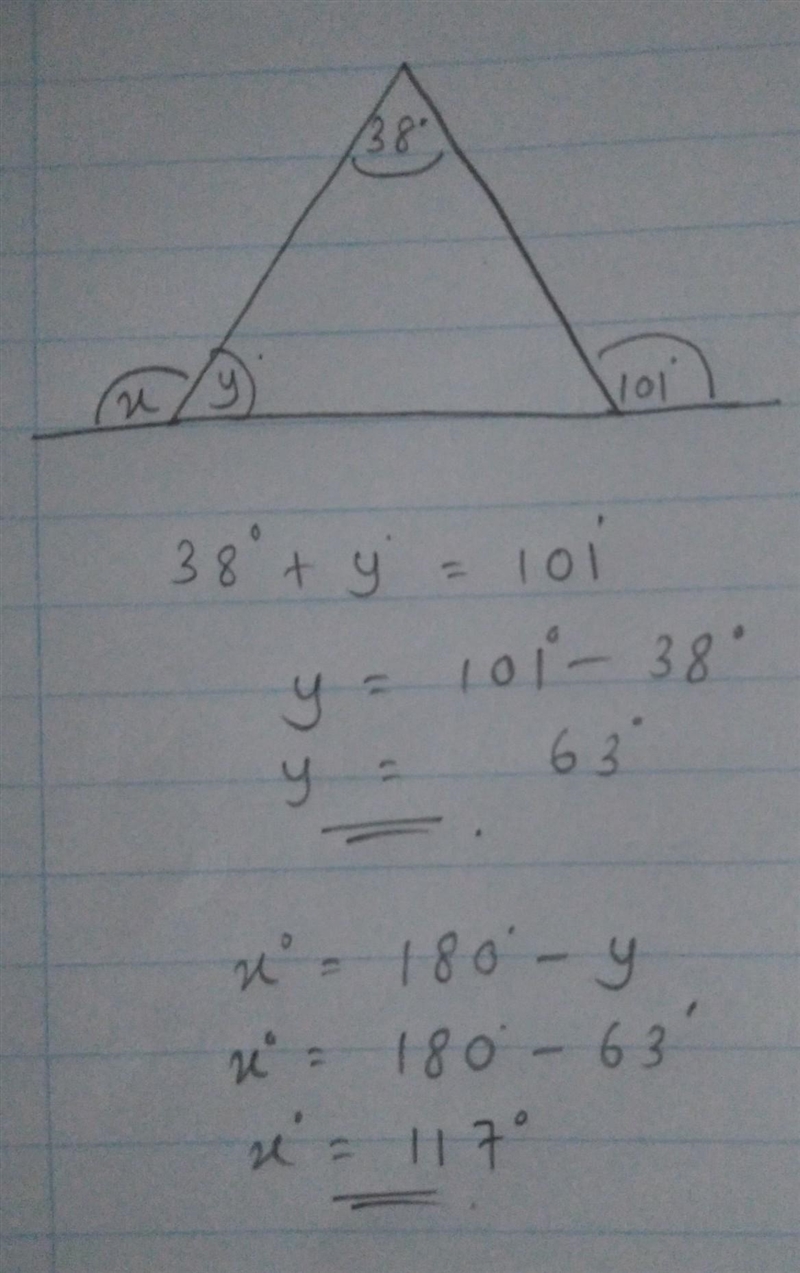 38°
x y 101°
38° + y° = 101°
y = 101° - 38°
y = 63°
x° = 180° - y
x° = 180° - 63°
x° = 117°